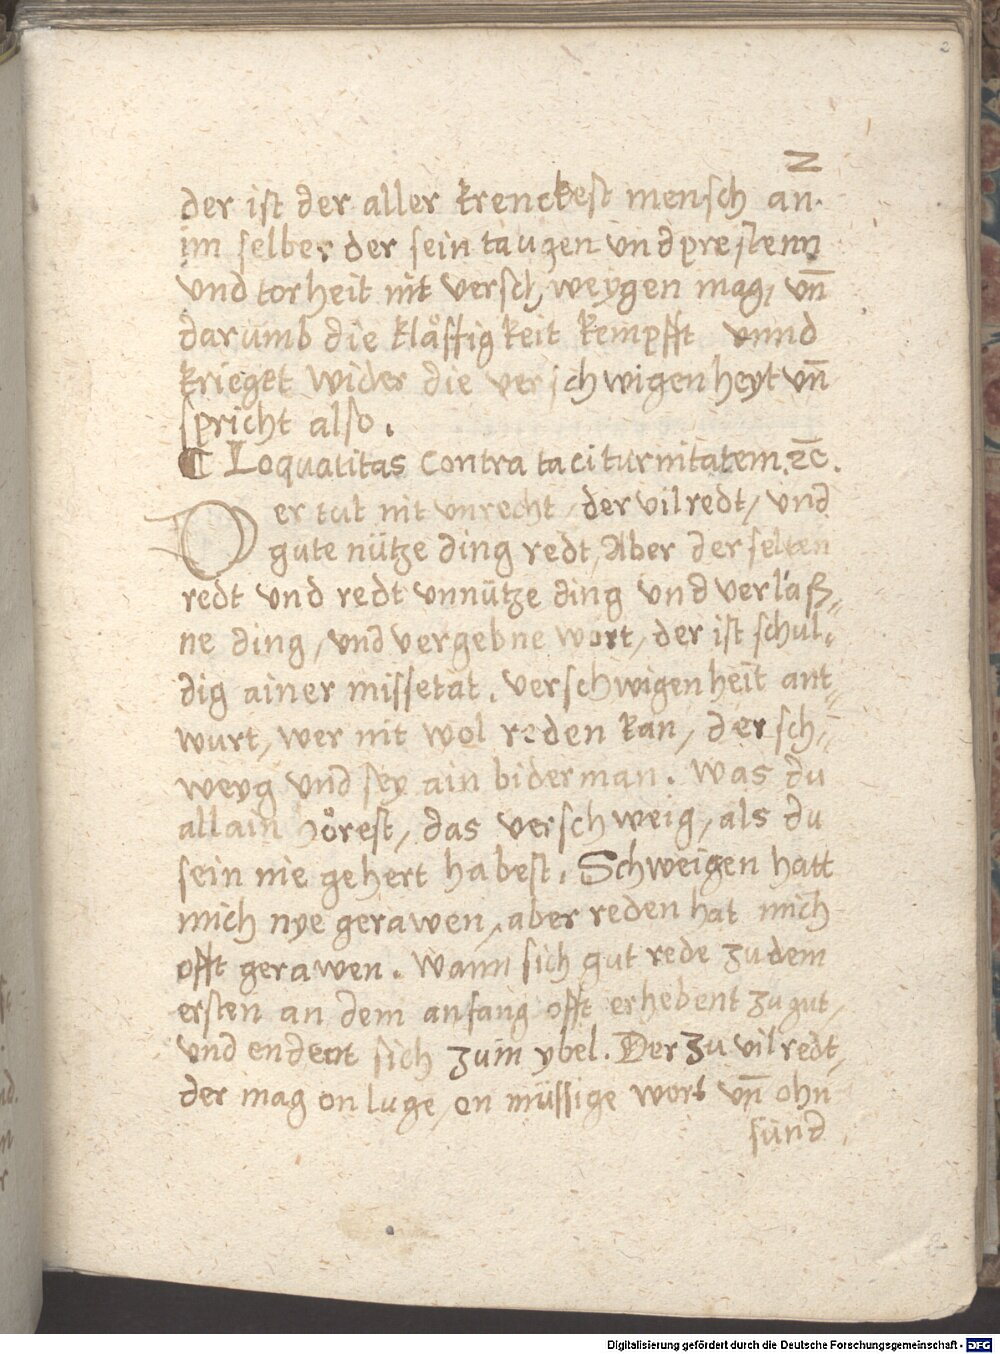 2
2
der ist der aller krenckest mensch an.
im selber der sein taugen und prestenn
und torheit nit verschweygen mag, un̄
darumb die klåffigkeit kempfft vnnd
krieget wider die verschwigenheyt un̄
spricht also.
¶ Loquatitas contra taciturnitatem. ⁊c̄.
Der tut nit unrecht, der vil redt, und
gute nütze ding redt, Aber der selten
redt und redt unnütze ding und verlaß⸗
ne ding, und vergebne wort, der ist schul⸗
dig ainer missetat. Verschwigenheit ant⸗
wurt, wer nit wol reden kan, der sch⸗
weyg und sey ain biderman. Was du
allain hőrest, das verschweig, als du
sein nie gehert habest. Schweigen hatt
mich nye gerawen, aber reden hat mich
offt gerawen. Wann sich gut rede zu dem
ersten an dem anfang offt erhebent zu gut,
und endent sich zum ybel. Der zu vil redt,
der mag on luge, on müssige wort un̄ ohn
sünd
Digitalisierung gefördert durch die Deutsche Forschungsgemeinschaft - DFG